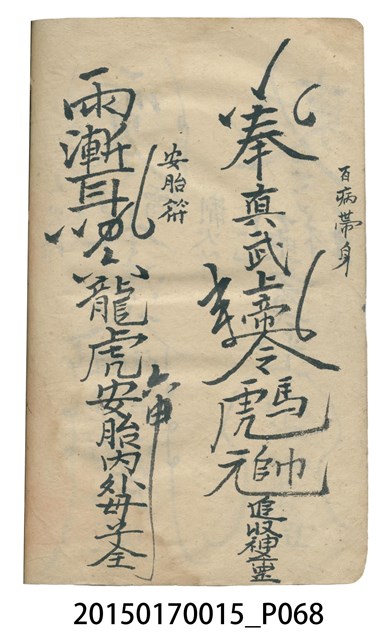 百病帶身
奉真武上帝令馬虎元帥追收
安胎符
雨漸耳
龍虎安胎內外母子全
六甲
20150170015_P068